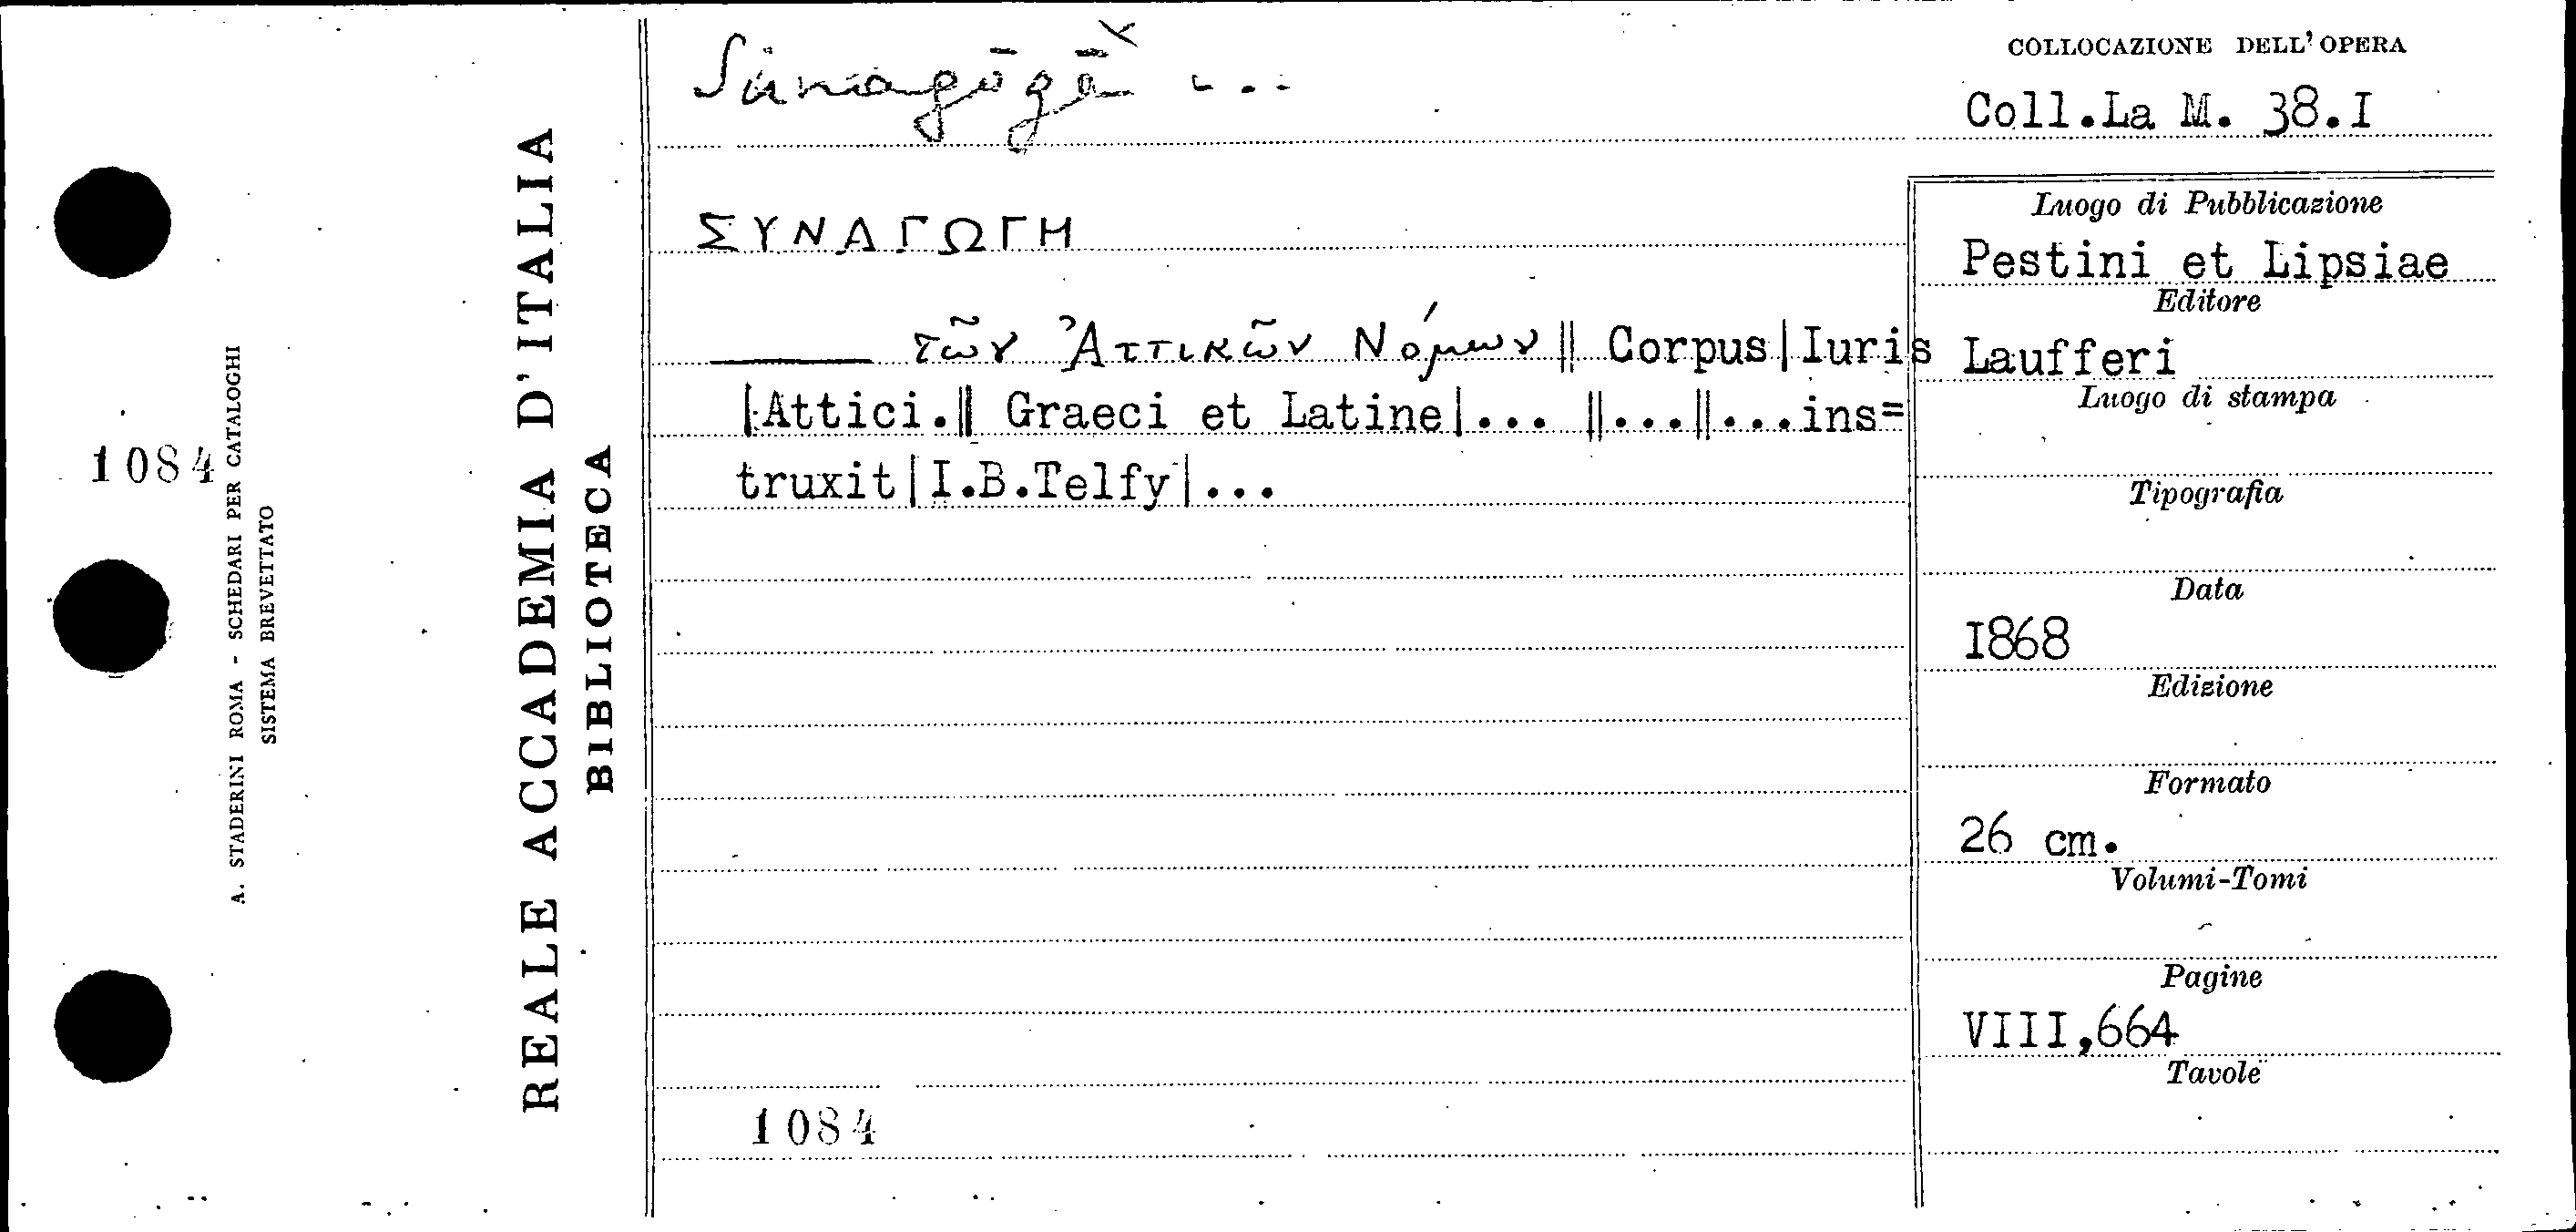 Sünagōgē ...
COLLOCAZIONE DELL' OPERA
Coll.La M. 38.I
ΣΥΝΑΓΩΓΗ
——— τῶν Ἀττικῶν Νόμων || Corpus|Iuris
|Attici.|| Graeci et Latine|... ||...||...ins=
truxit|I.B.Telfy|...
1084
Luogo di Pubblicazione
Pestini et Lipsiae
Editore
Laufferi
Luogo di stampa
Tipografia
Data
I868
Edizione
Formato
26 cm.
Volumi-Tomi
Pagine
VIII,664
Tavole
1084
A. STADERINI ROMA - SCHEDARI PER CATALOGHI
SISTEMA BREVETTATO
REALE ACCADEMIA D'ITALIA
BIBLIOTECA